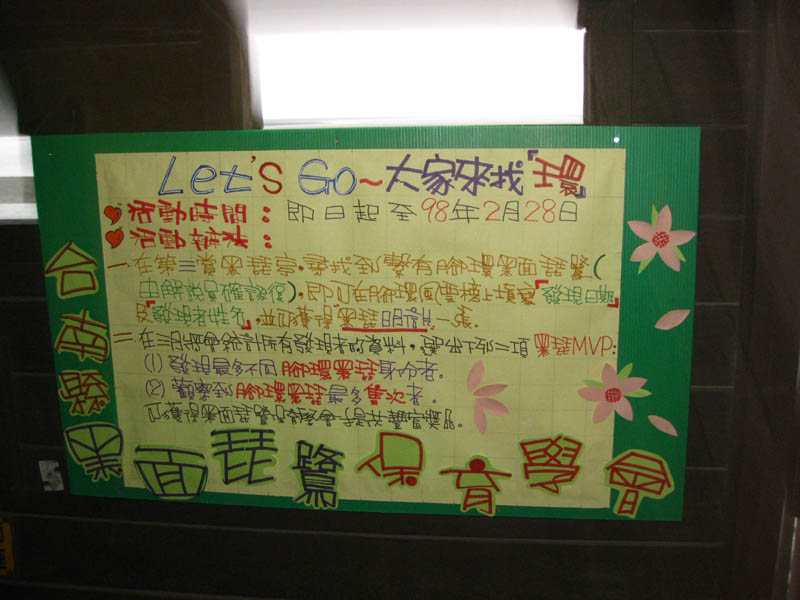 Let's Go~大家來找『環』
活動時間： 即日起至98年2月28日
活動辦法：
一、在第三賞黑琵亭，尋找到繫有腳環黑面琵鷺(
由解說員確認後)，即可在腳環風雲榜上填寫『發現日期』
及『發現者姓名』，並可獲得黑琵明信片一張。
二、在三月將會統計所有發現者的資料，選出下列二項 黑琵MVP:
(1) 發現最多不同腳環黑琵身份者。
(2) 觀察到腳環黑琵最多隻次者。
可獲得黑面琵鷺保育學會予提供豐富獎品。
台南縣黑面琵鷺保育學會